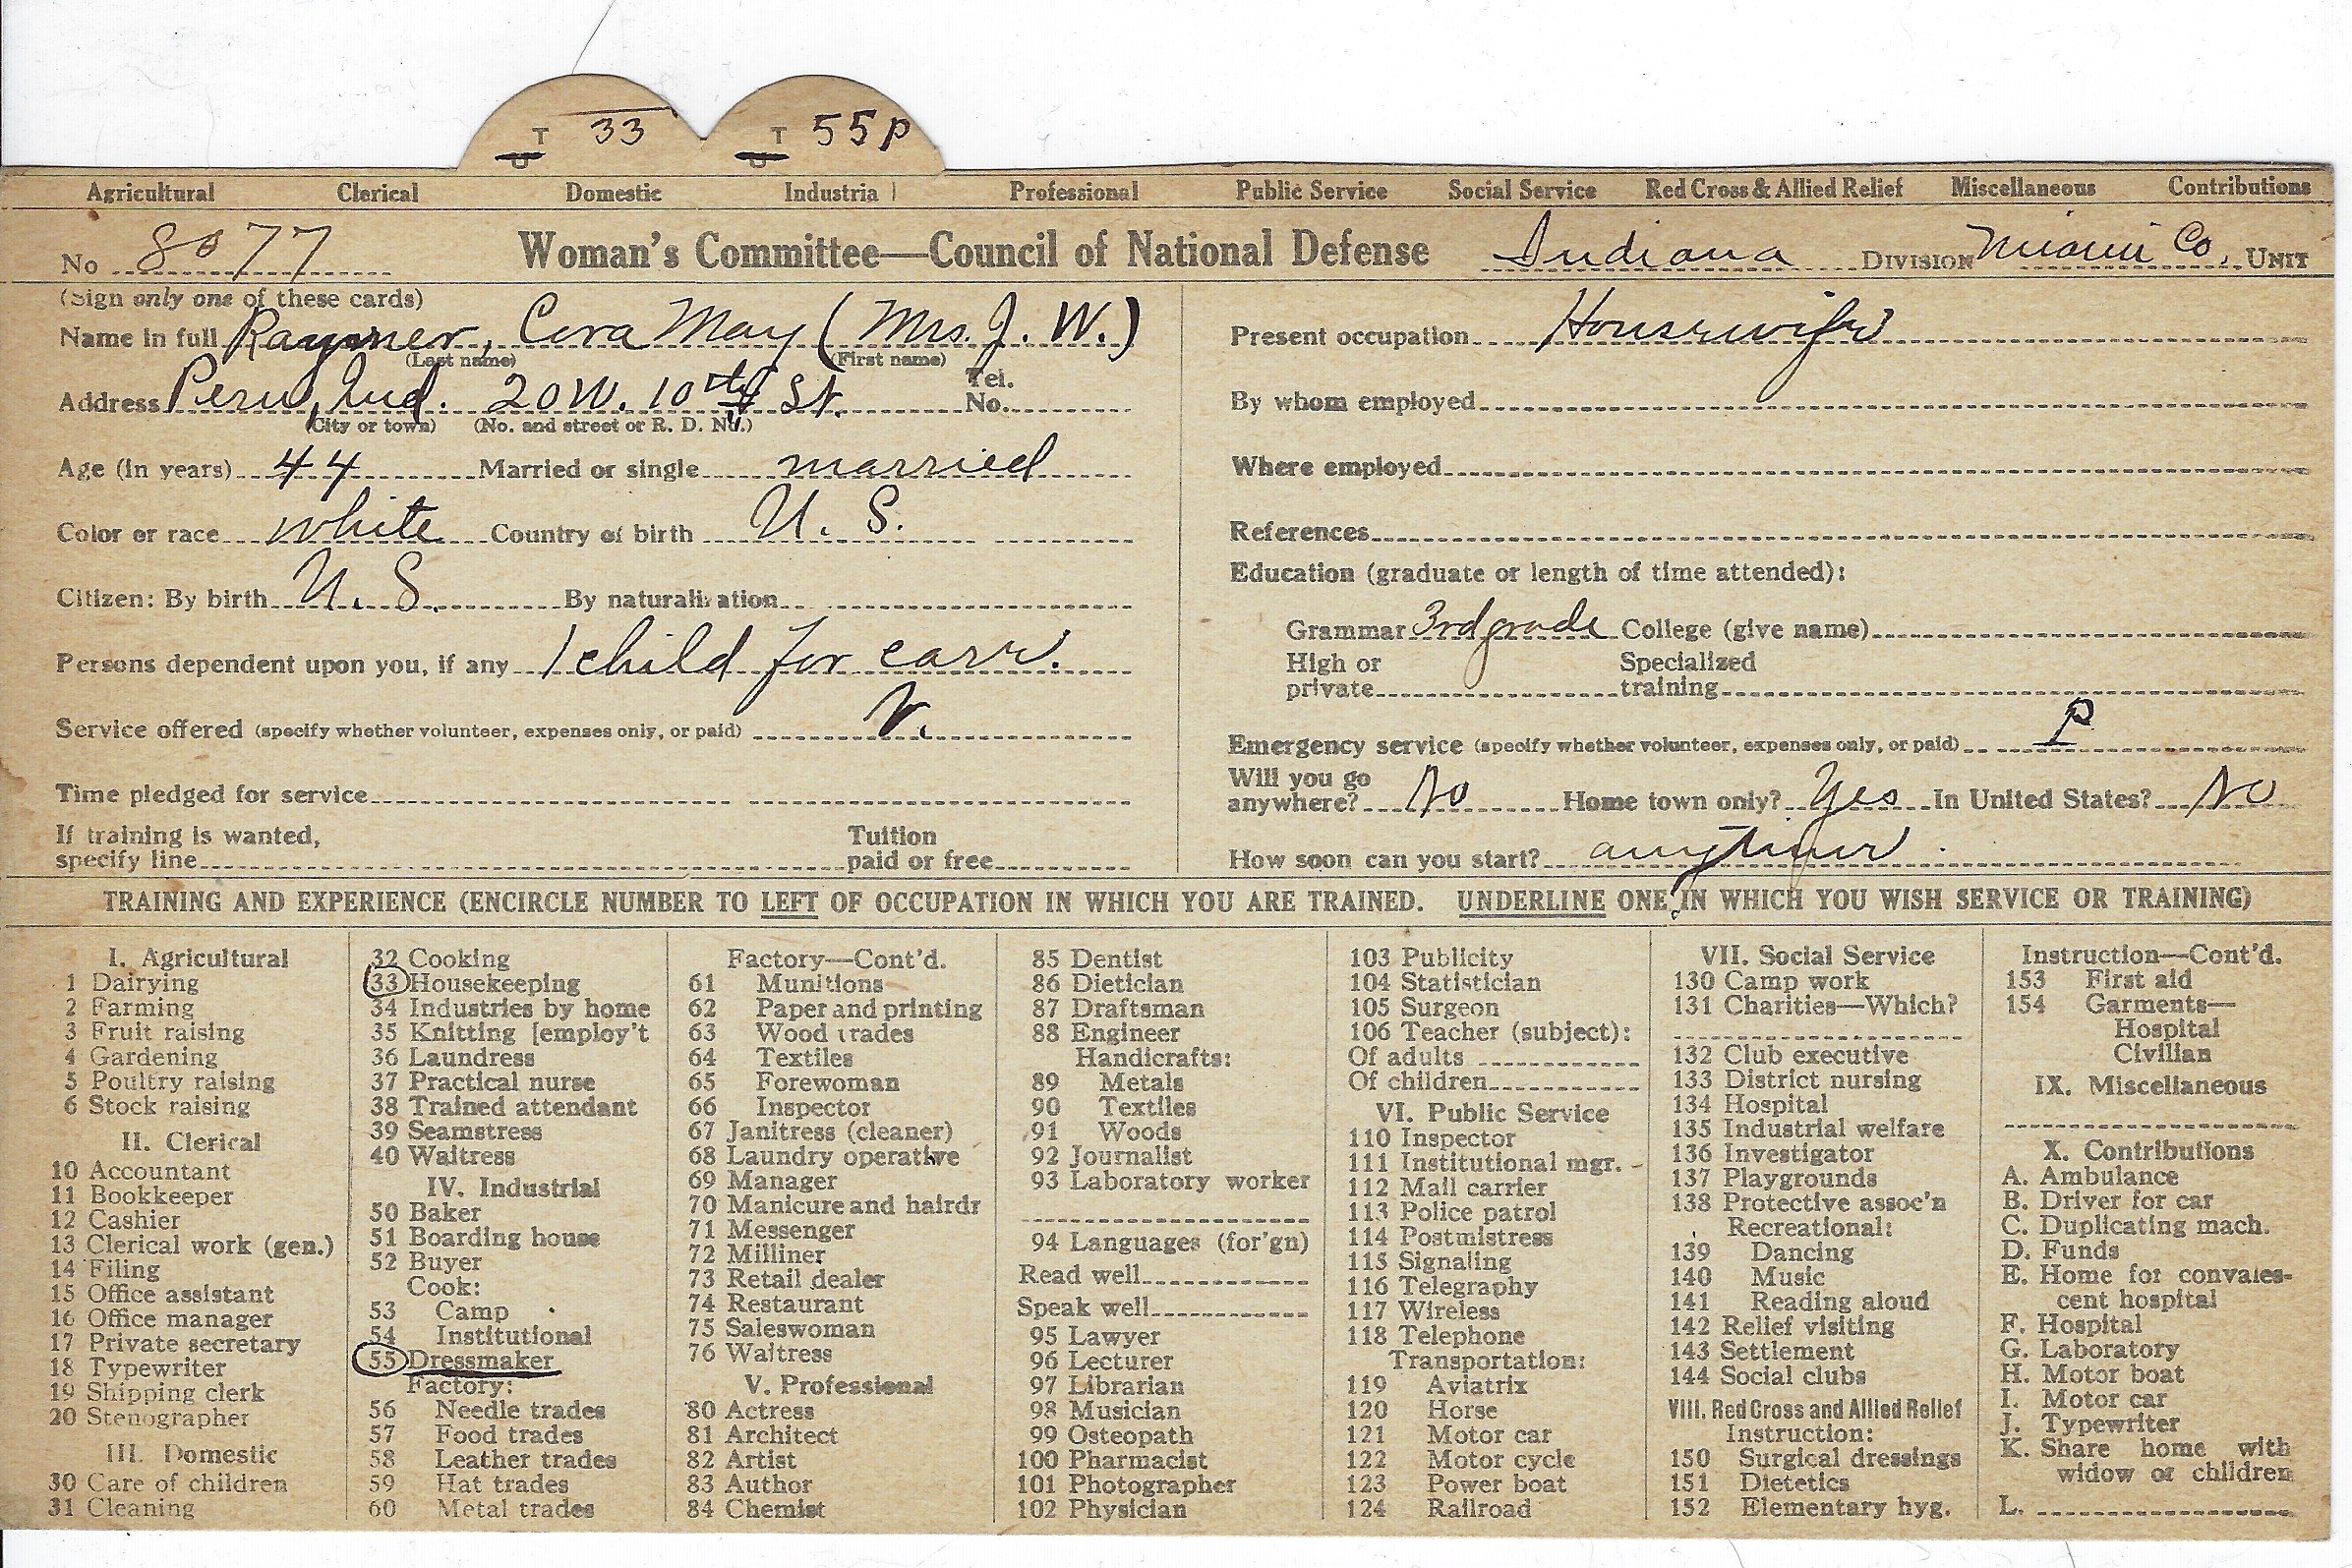 T 33 T 55 P
U U
Agricultural Clerical Domestic Industrial Professional Public Service Social Service Red Cross & Allied Relief Miscellaneous Contributions
No 8077 Woman's Committee—Council of National Defense Indiana DIVISION Miami Co. UNIT
(Sign only one of these cards)
Name in full Raymer, Cora May (Mrs. J. W.)
(Last name) (First name)
Address Peru, Ind. 20 W. 10th St. Tel. No.
(City or town) (No. and street or R. D. No.)
Age (in years) 44 Married or single married
Color or race white Country of birth U. S.
Citizen: By birth U. S. By naturalization
Persons dependent upon you, if any 1 child for care.
Service offered (specify whether volunteer, expenses only, or paid) V.
Time pledged for service
If training is wanted,
specify line Tuition paid or free
Present occupation Housewife
By whom employed
Where employed
References
Education (graduate or length of time attended):
Grammar 3rd grade College (give name)
High or private Specialized training
Emergency service (specify whether volunteer, expenses only, or paid) P
Will you go anywhere? No Home town only? Yes In United States? No
How soon can you start? anytime
TRAINING AND EXPERIENCE (ENCIRCLE NUMBER TO LEFT OF OCCUPATION IN WHICH YOU ARE TRAINED. UNDERLINE ONE IN WHICH YOU WISH SERVICE OR TRAINING)
I. Agricultural
1 Dairying
2 Farming
3 Fruit raising
4 Gardening
5 Poultry raising
6 Stock raising
II. Clerical
10 Accountant
11 Bookkeeper
12 Cashier
13 Clerical work (gen.)
14 Filing
15 Office assistant
16 Office manager
17 Private secretary
18 Typewriter
19 Shipping clerk
20 Stenographer
III. Domestic
30 Care of children
31 Cleaning
32 Cooking
33 Housekeeping
34 Industries by home
35 Knitting [employ't
36 Laundress
37 Practical nurse
38 Trained attendant
39 Seamstress
40 Waitress
IV. Industrial
50 Baker
51 Boarding house
52 Buyer
Cook:
53 Camp
54 Institutional
55 Dressmaker
Factory:
56 Needle trades
57 Food trades
58 Leather trades
59 Hat trades
60 Metal trades
Factory—Cont'd.
61 Munitions
62 Paper and printing
63 Wood trades
64 Textiles
65 Forewoman
66 Inspector
67 Janitress (cleaner)
68 Laundry operative
69 Manager
70 Manicure and hairdr
71 Messenger
72 Milliner
73 Retail dealer
74 Restaurant
75 Saleswoman
76 Waitress
V. Professional
80 Actress
81 Architect
82 Artist
83 Author
84 Chemist
85 Dentist
86 Dietician
87 Draftsman
88 Engineer
Handicrafts:
89 Metals
90 Textiles
91 Woods
92 Journalist
93 Laboratory worker
94 Languages (for'gn)
Read well
Speak well
95 Lawyer
96 Lecturer
97 Librarian
98 Musician
99 Osteopath
100 Pharmacist
101 Photographer
102 Physician
103 Publicity
104 Statistician
105 Surgeon
106 Teacher (subject):
Of adults
Of children
VI. Public Service
110 Inspector
111 Institutional mgr.
112 Mail carrier
113 Police patrol
114 Postmistress
115 Signaling
116 Telegraphy
117 Wireless
118 Telephone
Transportation:
119 Aviatrix
120 Horse
121 Motor car
122 Motor cycle
123 Power boat
124 Railroad
VII. Social Service
130 Camp work
131 Charities—Which?
132 Club executive
133 District nursing
134 Hospital
135 Industrial welfare
136 Investigator
137 Playgrounds
138 Protective assoc'n
Recreational:
139 Dancing
140 Music
141 Reading aloud
142 Relief visiting
143 Settlement
144 Social clubs
VIII. Red Cross and Allied Relief
Instruction:
150 Surgical dressings
151 Dietetics
152 Elementary hyg.
Instruction—Cont'd.
153 First aid
154 Garments—
Hospital
Civilian
IX. Miscellaneous
X. Contributions
A. Ambulance
B. Driver for car
C. Duplicating mach.
D. Funds
E. Home for convales-
cent hospital
F. Hospital
G. Laboratory
H. Motor boat
I. Motor car
J. Typewriter
K. Share home with
widow or children
L.